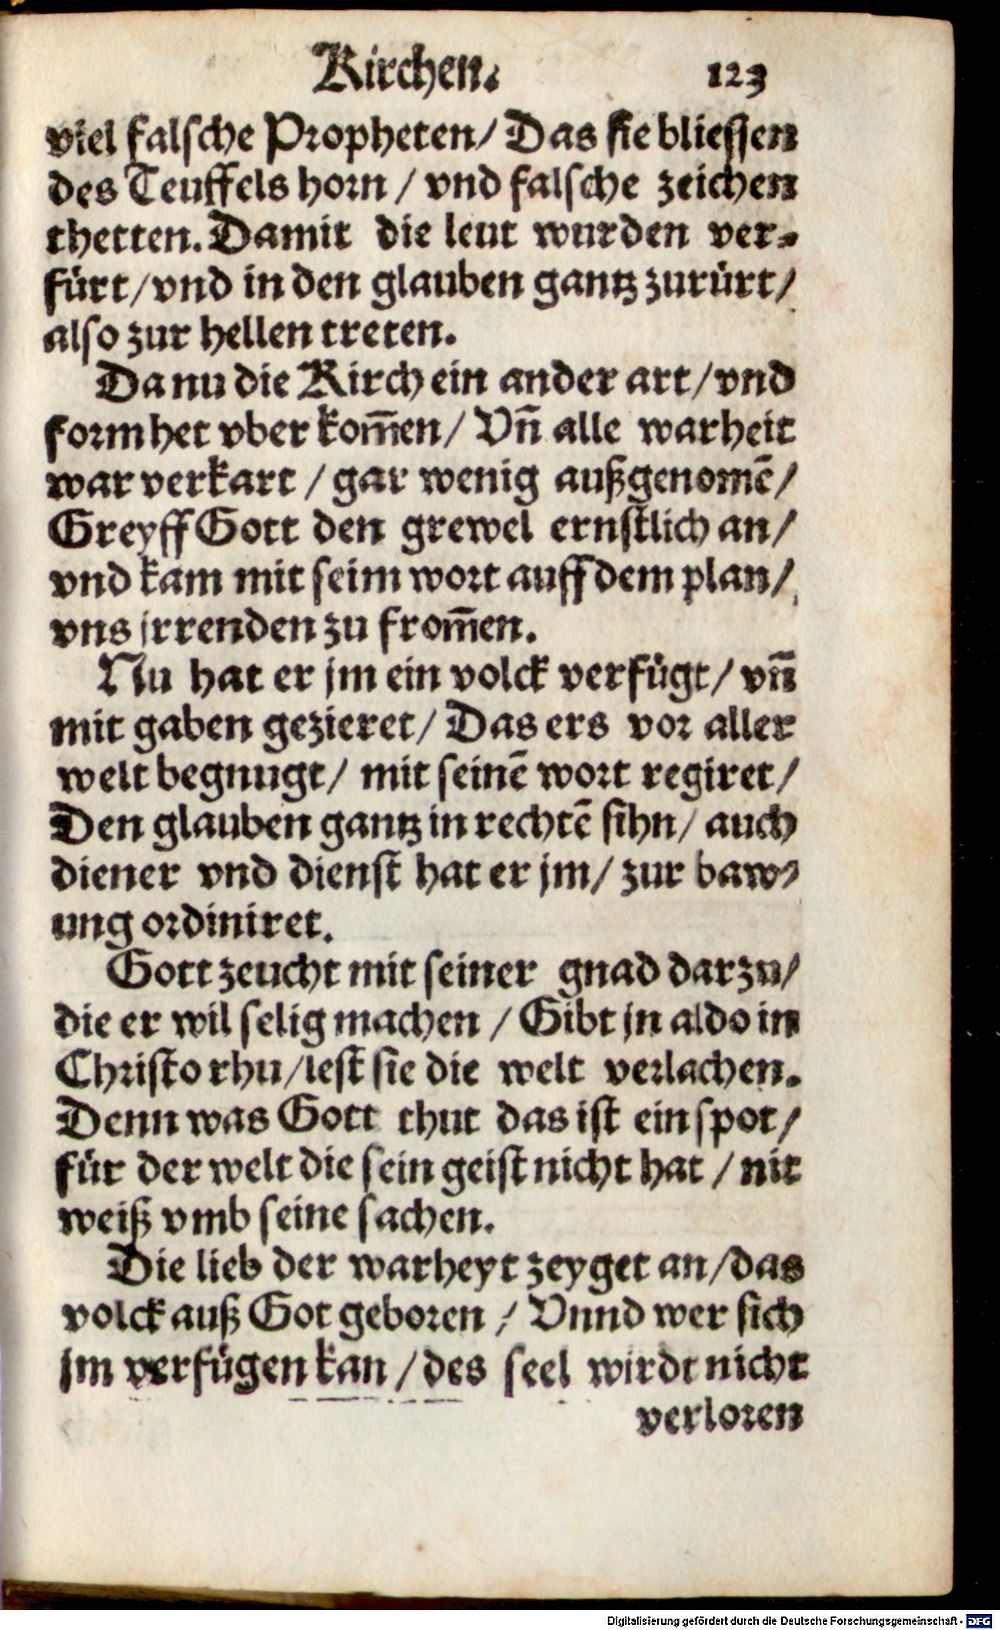 Kirchen. 123
viel falsche Propheten/ Das sie bliessen
des Teuffels horn / vnd falsche zeichen
thetten. Damit die leut wurden ver⸗
fürt/ vnd in den glauben gantz zurürt/
also zur hellen treten.
Da nu die Kirch ein ander art/ vnd
form het vber kom̄en/ Vn̄ alle warheit
war verkart / gar wenig außgenomē/
Greyff Gott den grewel ernstlich an/
vnd kam mit seim wort auff dem plan/
vns jrrenden zu from̄en.
Nu hat er jm ein volck verfügt/ vn̄
mit gaben gezieret/ Das ers vor aller
welt begnugt/ mit seinē wort regiret/
Den glauben gantz in rechtē sihn/ auch
diener vnd dienst hat er jm/ zur baw⸗
ung ordiniret.
Gott zeucht mit seiner gnad darzu/
die er wil selig machen / Gibt jn aldo in
Christo rhu/ lest sie die welt verlachen.
Denn was Gott thut das ist ein spot/
für der welt die sein geist nicht hat / nit
weiß vmb seine sachen.
Die lieb der warheyt zeyget an/ das
volck auß Got geboren / Vnnd wer sich
jm verfügen kan / des seel wirdt nicht
verloren
Digitalisierung gefördert durch die Deutsche Forschungsgemeinschaft - DFG